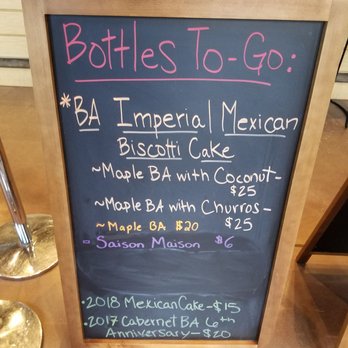 Bottles To-Go:
*BA Imperial Mexican
Biscotti Cake
~Maple BA with Coconut-
$25
~Maple BA with Churros-
$25
~Maple BA $20
- Saison Maison $6
•2018 Mexican Cake-$15
•2017 Cabernet BA 6th
Anniversary-$20